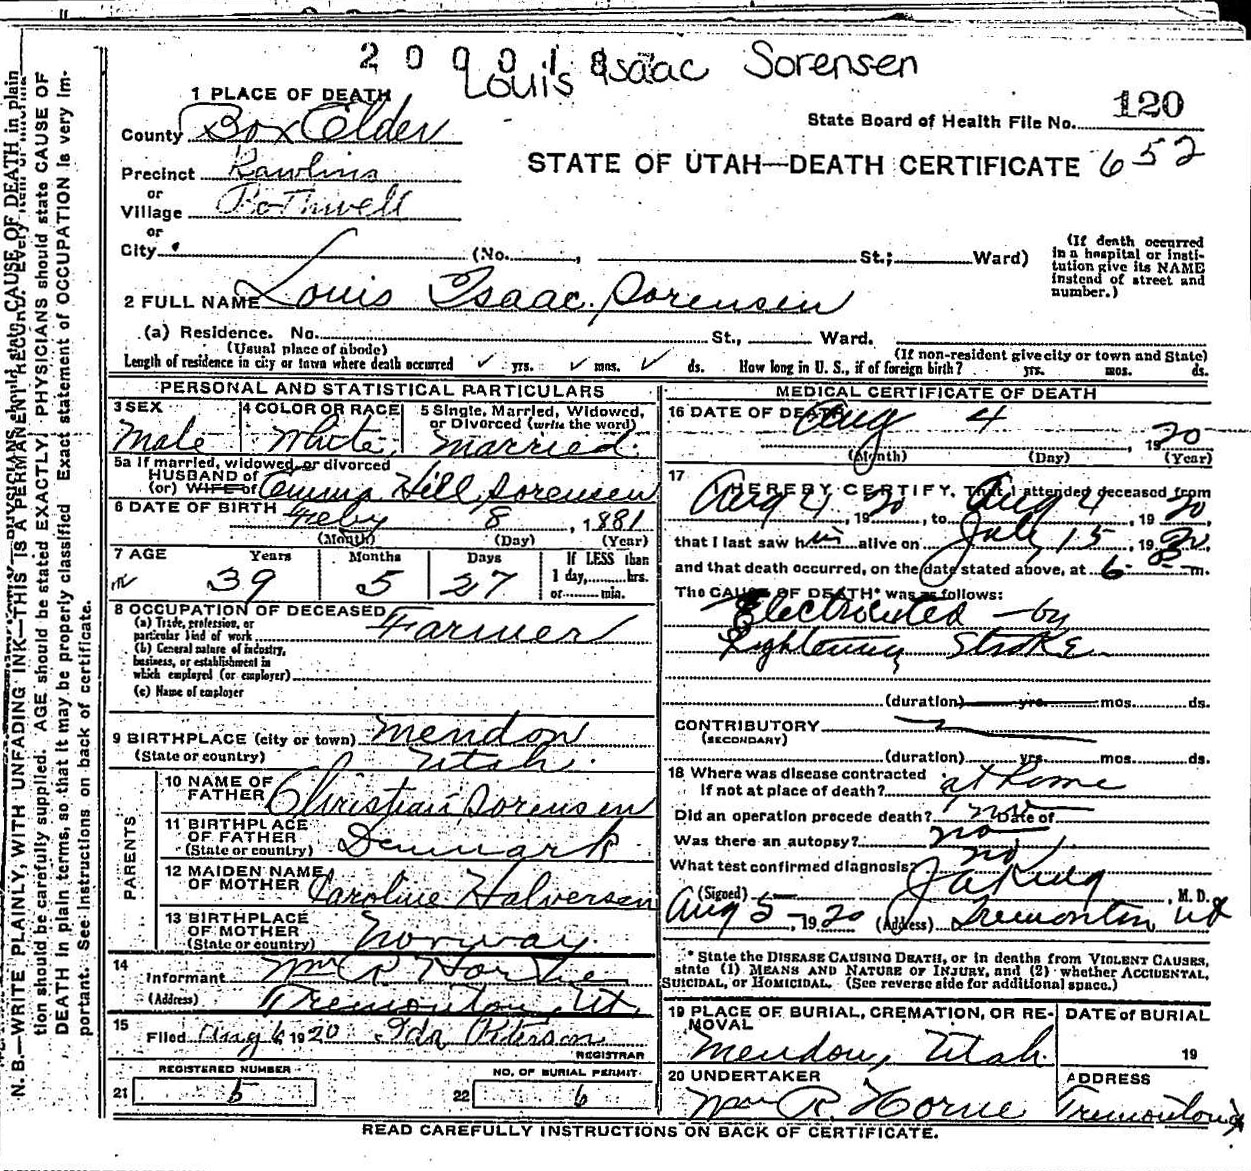 2 0 0 0 1 8
Louis Isaac Sorensen
1 PLACE OF DEATH
120
State Board of Health File No.
County Box Elder
STATE OF UTAH—DEATH CERTIFICATE 652
Precinct Rawlins
or
Village Bothwell
or
City (No. , St.; Ward)
(If death occurred in a hospital or institution give its NAME instead of street and number.)
2 FULL NAME Louis Isaac Sorensen
(a) Residence. No. St., Ward.
(Usual place of abode) (If non-resident give city or town and State)
Length of residence in city or town where death occurred ✓ yrs. ✓ mos. ✓ ds. How long in U. S., if of foreign birth? yrs. mos. ds.
PERSONAL AND STATISTICAL PARTICULARS
3 SEX 4 COLOR OR RACE 5 Single, Married, Widowed, or Divorced (write the word)
Male White Married
5a If married, widowed, or divorced
HUSBAND of
(or) WIFE of Emma Hill Sorensen
6 DATE OF BIRTH Feby 8, 1881
(Month) (Day) (Year)
7 AGE Years Months Days If LESS than 1 day, hrs. or min.
39 5 27
8 OCCUPATION OF DECEASED
(a) Trade, profession, or particular kind of work Farmer
(b) General nature of industry, business, or establishment in which employed (or employer)
(c) Name of employer
9 BIRTHPLACE (city or town) Mendon
(State or country) Utah.
PARENTS
10 NAME OF FATHER Christian Sorensen
11 BIRTHPLACE OF FATHER (State or country) Denmark
12 MAIDEN NAME OF MOTHER Caroline Halversen
13 BIRTHPLACE OF MOTHER (State or country) Norway.
14 Informant Wm R Horne
(Address) Tremonton, Ut.
15 Filed Aug 6, 1920 Ida Peterson
REGISTRAR
REGISTERED NUMBER NO. OF BURIAL PERMIT
21 5 22 6
MEDICAL CERTIFICATE OF DEATH
16 DATE OF DEATH Aug 4, 1920
(Month) (Day) (Year)
17 I HEREBY CERTIFY, That I attended deceased from
Aug 4, 1920, to Aug 4, 1920,
that I last saw him alive on July 15, 1920,
and that death occurred, on the date stated above, at 6 m.
The CAUSE OF DEATH* was as follows:
Electrocuted by
Lightening Stroke
(duration) yrs. mos. ds.
CONTRIBUTORY
(SECONDARY)
(duration) yrs. mos. ds.
18 Where was disease contracted
If not at place of death? at home
Did an operation precede death? no Date of
Was there an autopsy? no
What test confirmed diagnosis? no
(Signed) , M. D.
Aug 5, 1920 (Address) Tremonton Ut
* State the DISEASE CAUSING DEATH, or in deaths from VIOLENT CAUSES,
state (1) MEANS AND NATURE OF INJURY, and (2) whether ACCIDENTAL,
SUICIDAL, or HOMICIDAL. (See reverse side for additional space.)
19 PLACE OF BURIAL, CREMATION, OR REMOVAL DATE of BURIAL
Mendon, Utah. 19
20 UNDERTAKER ADDRESS
Wm R. Horne Tremonton
READ CAREFULLY INSTRUCTIONS ON BACK OF CERTIFICATE.
N. B.—WRITE PLAINLY, WITH UNFADING INK—THIS IS A PERMANENT RECORD. Every item of information should be carefully supplied. AGE should be stated EXACTLY. PHYSICIANS should state CAUSE OF DEATH in plain terms, so that it may be properly classified. Exact statement of OCCUPATION is very important. See instructions on back of certificate.